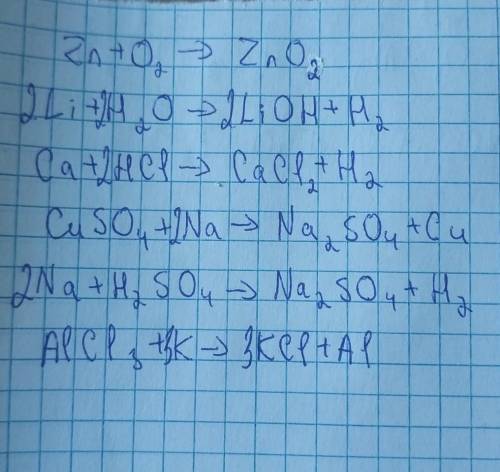 Zn + O₂ → ZnO₂
2Li + 2H₂O → 2LiOH + H₂
Ca + 2HCl → CaCl₂ + H₂
CuSO₄ + 2Na → Na₂SO₄ + Cu
2Na + H₂SO₄ → Na₂SO₄ + H₂
AlCl₃ + 3K → 3KCl + Al